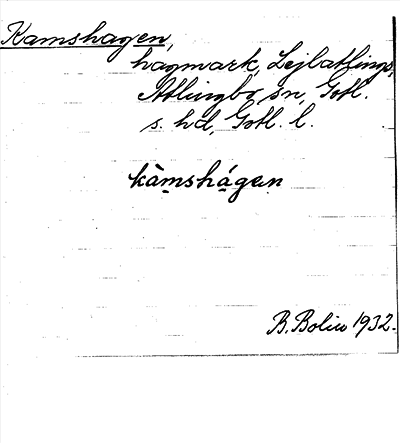 Kamshagen,
hagmark, Lejlatlings,
Atlingbo sn, Gotl.
s. hd, Gotl. l.
kàmshágen
B. Bolin 1932.